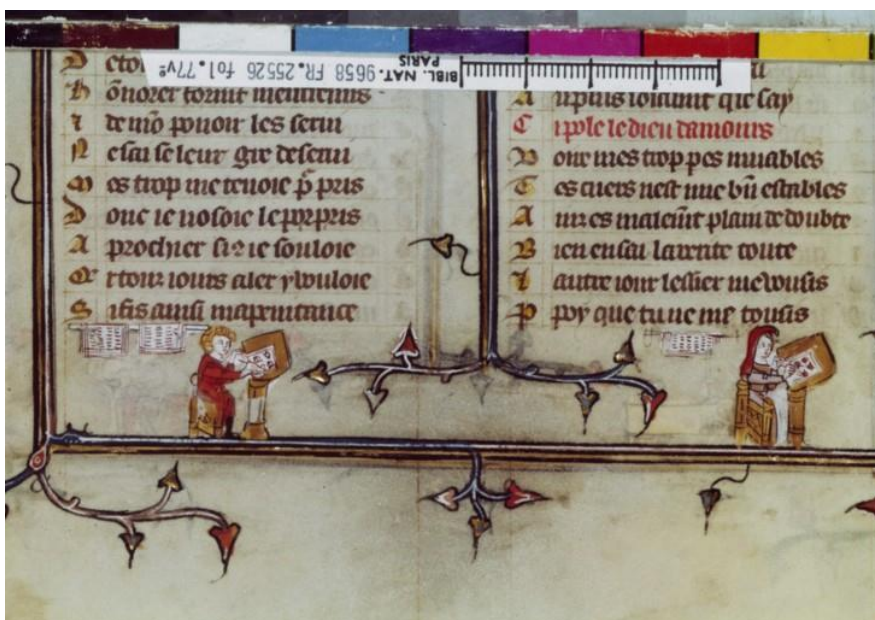 BIBL. NAT.
PARIS
9658 FR. 25526 fol. 77vº
D
honorer tornir mentenirs
I de mō pouoir les serui
N e sai se leur gre deserui
M es trop me tenoie p̄ pris
D onc ie nosoie le porpris
A prochier si ꝯ ie souloie
Et tour iours aler y vouloie
S i fis ainsi ma penitance
A u puis ioiaunt que say
C i pole le dieu damours
D onc mes trop pes muables
T es cuers nest mie bn̄ estables
A nres malem̄t plain de doubte
B ien en sai la verite toute
L autre iour lessier me vousis
P poy que tu ne me tousis